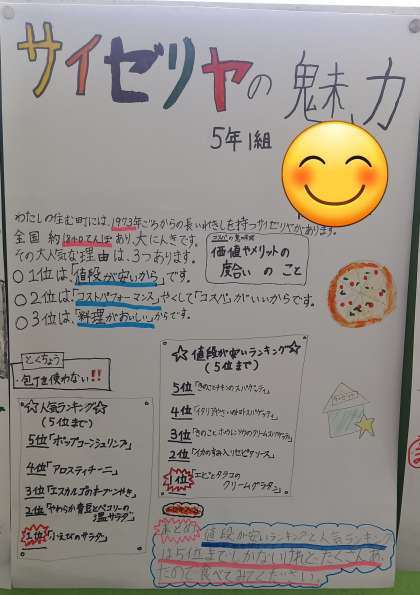 サイゼリヤの魅力
5年1組
わたしの住む町には、1973年ごろからの長いれきしを持つサイゼリヤがあります。
全国 約1840てんぽあり、大にんきです。
その大人気な理由は、3つあります。
○1位は、「値段が安いから」です。
○2位は、「コストパフォーマンス」やくして「コスパ」がいいからです。
○3位は、「料理がおいしい」からです。
価値やメリットの
度合い の こと
とくちょう
・包丁を使わない!!
☆人気ランキング☆
(5位まで)
5位「ポップコーンシュリンプ」
4位「アロスティチーニ」
3位「エスカルゴのオーブンやき」
2位「やわらか青豆とペコリーノの
温サラダ」
1位「小えびのサラダ」
☆値段が安いランキング☆
(5位まで)
5位「きのことチキンのスパゲッティ」
4位
3位「きのことホウレンソウのクリームスパゲッティ」
2位「イカのすみ入りセピアソース」
1位「エビとタラコの
クリームグラタン」
まとめ
値段が安いランキングと人気ランキング
は5位までしかないけれど、たくさんあ
たので食べてみてください。